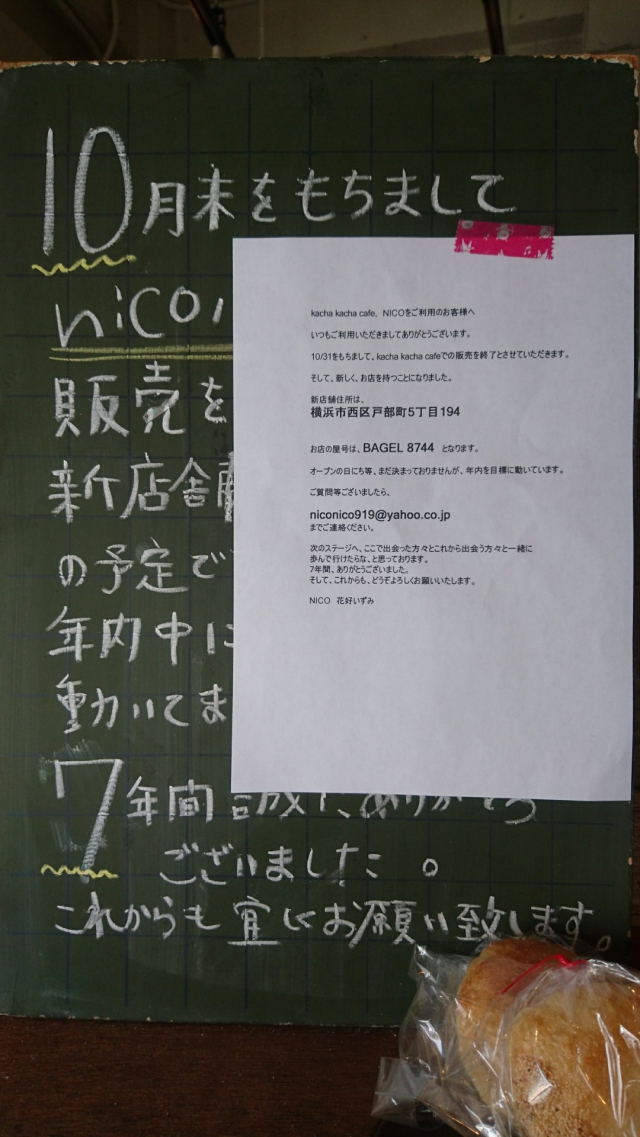 10月末をもちまして
nico
販売を
新店舗
の予定で
年内中に
動いてま
7年間 誠に、ありがとう
ございました。
これからも宜しくお願い致します。
kacha kacha cafe, NICOをご利用のお客様へ
いつもご利用いただきましてありがとうございます。
10/31をもちまして、kacha kacha cafeでの販売を終了とさせていただきます。
そして、新しく、お店を持つことになりました。
新店舗住所は、
横浜市西区戸部町5丁目194
お店の屋号は、BAGEL 8744 となります。
オープンの日にち等、まだ決まっておりませんが、年内を目標に動いています。
ご質問等ございましたら、
niconico919@yahoo.co.jp
までご連絡ください。
次のステージへ、ここで出会った方々とこれから出会う方々と一緒に
歩んで行けたらな、と思っております。
7年間、ありがとうございました。
そして、これからも、どうぞよろしくお願いいたします。
NICO 花好いずみ